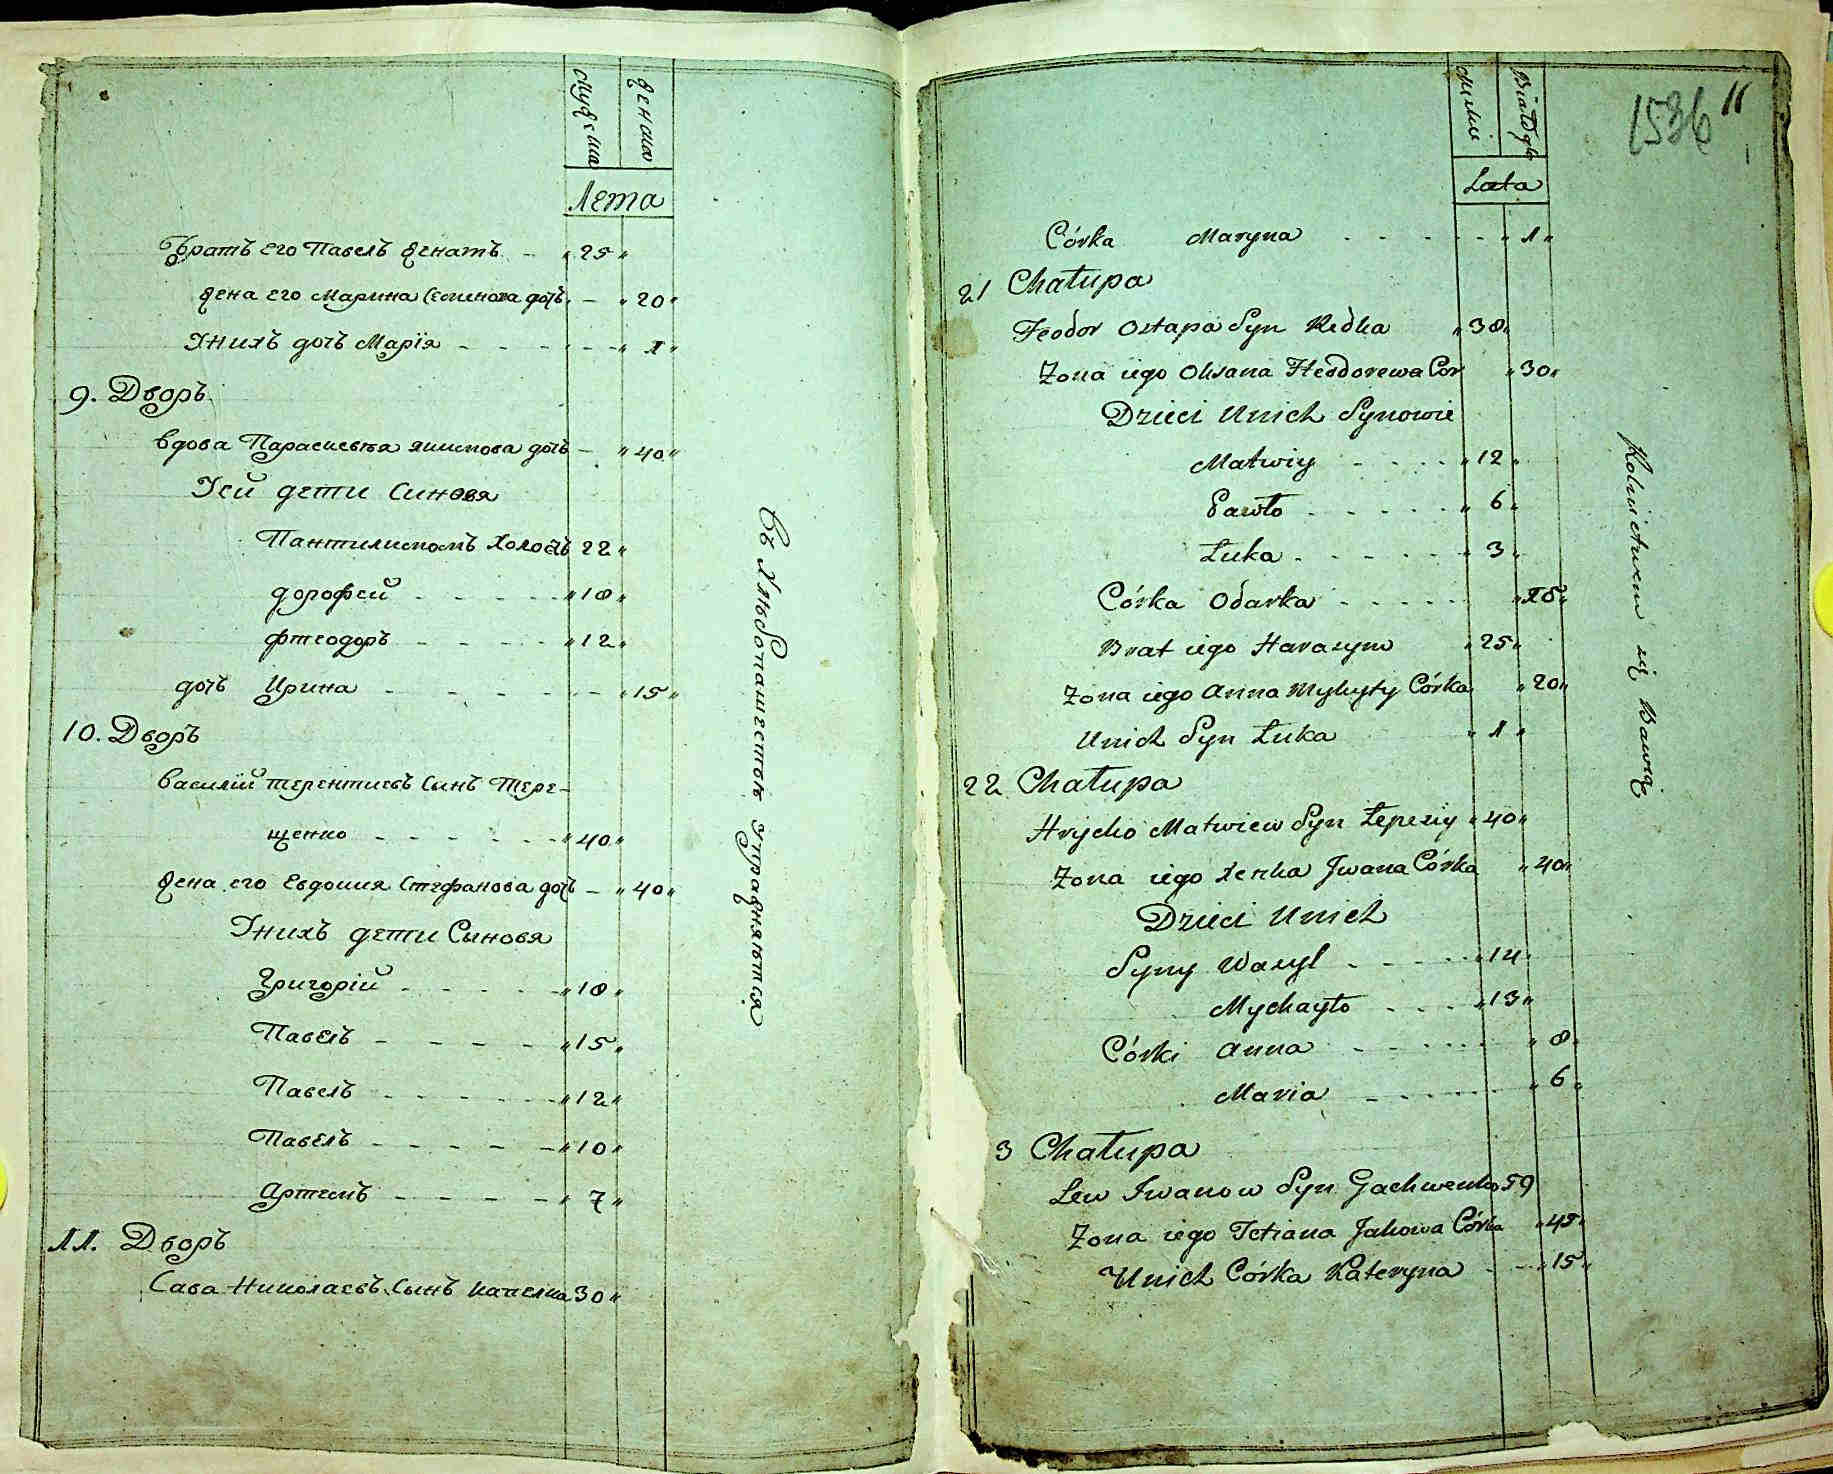 мужеска
женска
Лета
братъ его Павелъ женатъ - „ 25 „
жена его Марина Семенова дочь - „ 20 „
Унихъ дочь Марїя - - - - - „ 1 „
9. Дворъ
вдова Парасцевія якимова дочь - „ 40 „
Уей дети Синовя
Пантилимонъ холостъ 22 „
дорофей - - - - „ 18 „
фтеодоръ - - - - „ 12 „
дочь Ирина - - - - - „ 15 „
10. Дворъ
василїй терентиевъ Сынъ Тере-
щенко - - - - - „ 40 „
жена его Евдокия Стефанова дочь - „ 40 „
Унихъ дети Сыновя
Григорїй - - - - „ 18 „
Павелъ - - - - „ 15 „
Павелъ - - - - „ 12 „
Павелъ - - - - „ 10 „
Артемъ - - - - „ 7 „
11. Дворъ
Сава Николаевъ Сынъ капелка 30 „
Męzkie
Białogło
Lata
1536
11
Córka Maryna - - - - - „ 1 „
21 Chałupa
Fteodor Ostapa Syn Redka „ 38 „
Zona iego Oksana Fteodorewa Cor „ 30 „
Dzieci Unich Synowie
Matwiy - - - - „ 12 „
Pawło - - - - - „ 6 „
Łuka - - - - - „ 3 „
Córka Odarka - - - - - „ 15 „
Brat iego Harasym „ 25 „
Zona iego Anna Mykyty Córka „ 20 „
Unich Syn Łuka „ 1 „
22 Chałupa
Hrycko Matwiew Syn Łepeiy „ 40 „
Zona iego Iwana Córka „ 40 „
Dzieci Unich
Syny Wasyl - - - - „ 14 „
Mychayło - - - „ 13 „
Córki Anna - - - - - „ 8 „
Maria - - - - - „ 6 „
3 Chałupa
Lew Iwanow Syn 59
Zona iego Tetiana Jakowa Córka „ 45 „
Unich Córka Kateryna - - „ 15 „
Rolnictwem się Bawią